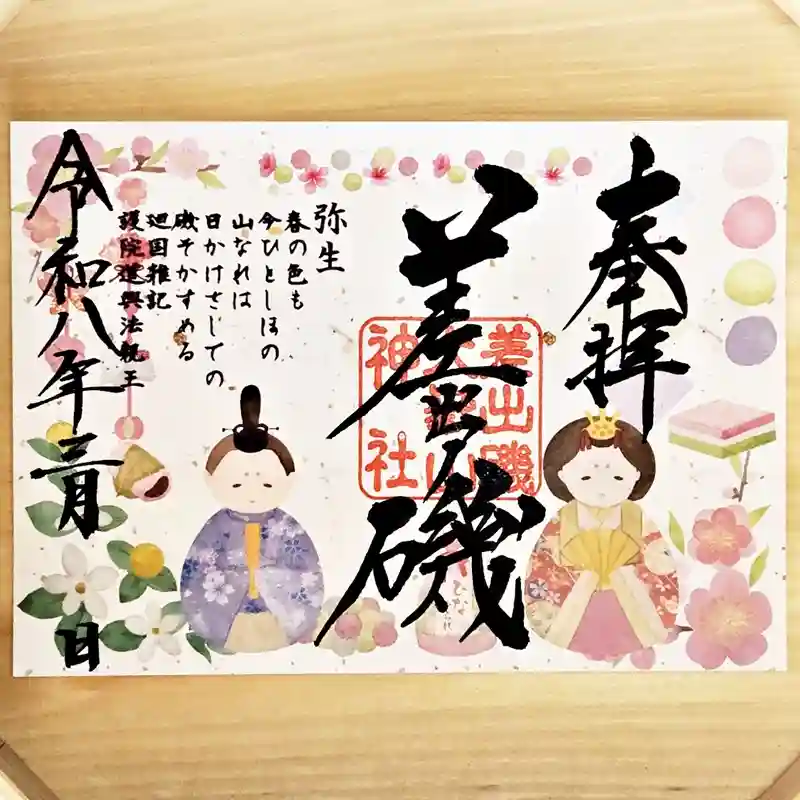 奉拝
差出磯
差出磯
大嶽山
神社
弥生
春の色も
今ひとしほの
山なれは
日かけさしての
磯そかすめる
廻国雑記
護院道興法親王
令和八年三月 日